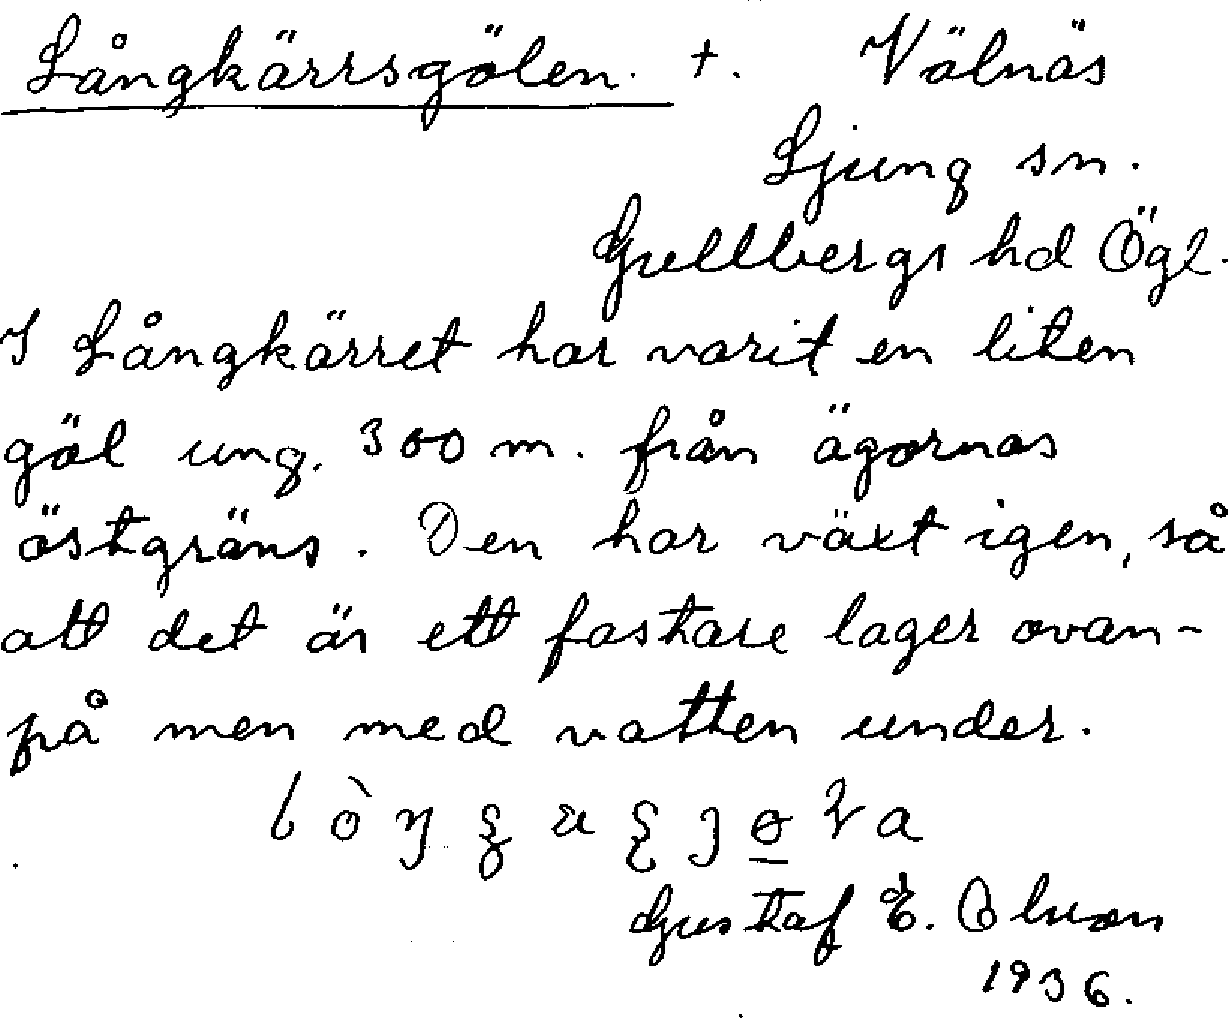 Långkärrsgölen. +. Välnäs
Ljung sn.
Gullbergs hd Ögl.
I Långkärret har varit en liten
göl ung. 300 m. från ägornas
östgräns. Den har växt igen, så
att det är ett fastare lager ovan-
på men med vatten under.
Gustaf E. Olsson
1936.